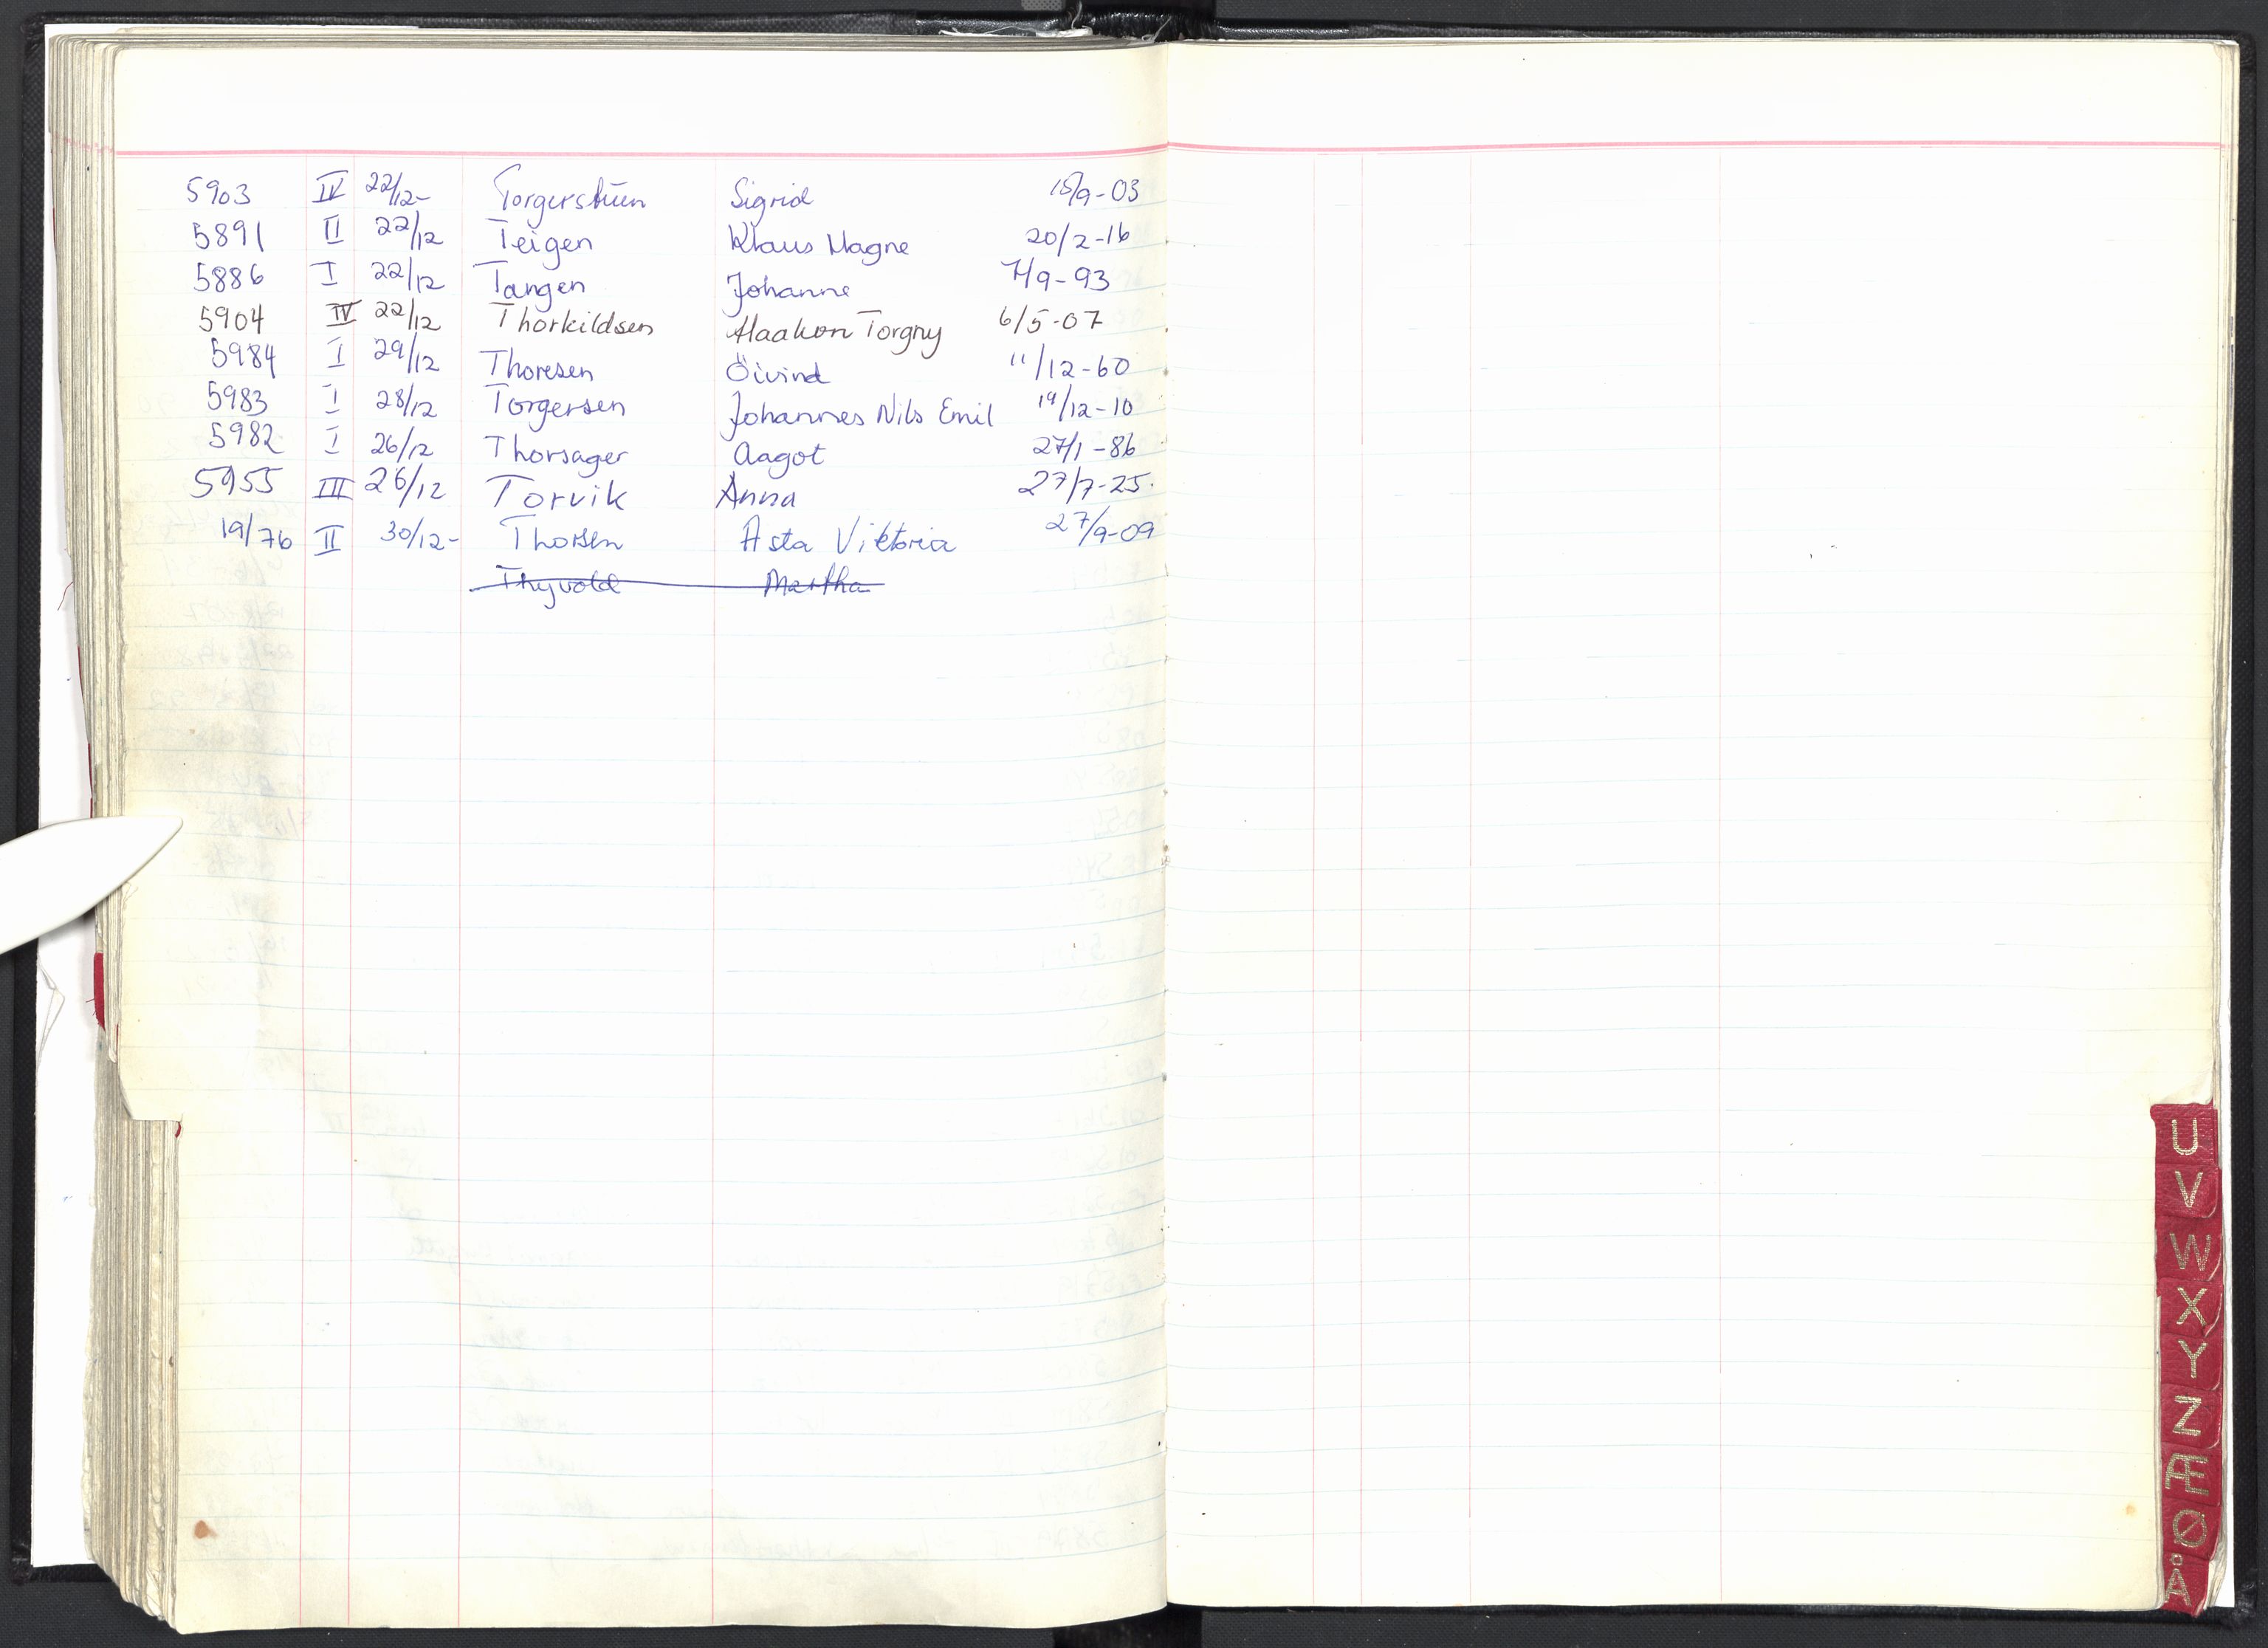 5903 IV 22/12- Torgerstuen Sigrid 15/9-03
5891 II 22/12 Teigen Klaus Magne 20/2-16
5886 I 22/12 Tangen Johanne 7/9-93
5904 IV 22/12 Thorkildsen Haakon Torgny 6/5-07
5984 I 29/12 Thoresen Öivind 11/12-60
5983 I 28/12 Torgersen Johannes Nils Emil 19/12-10
5982 I 26/12 Thorsager Aagot 27/1-86
5955 III 26/12 Torvik Anna 27/7-25.
19/76 II 30/12- Thorsen Asta Viktoria 27/9-09
Thyvold Martha
U
V
W
X
Y
Z
Æ
Ø
Å